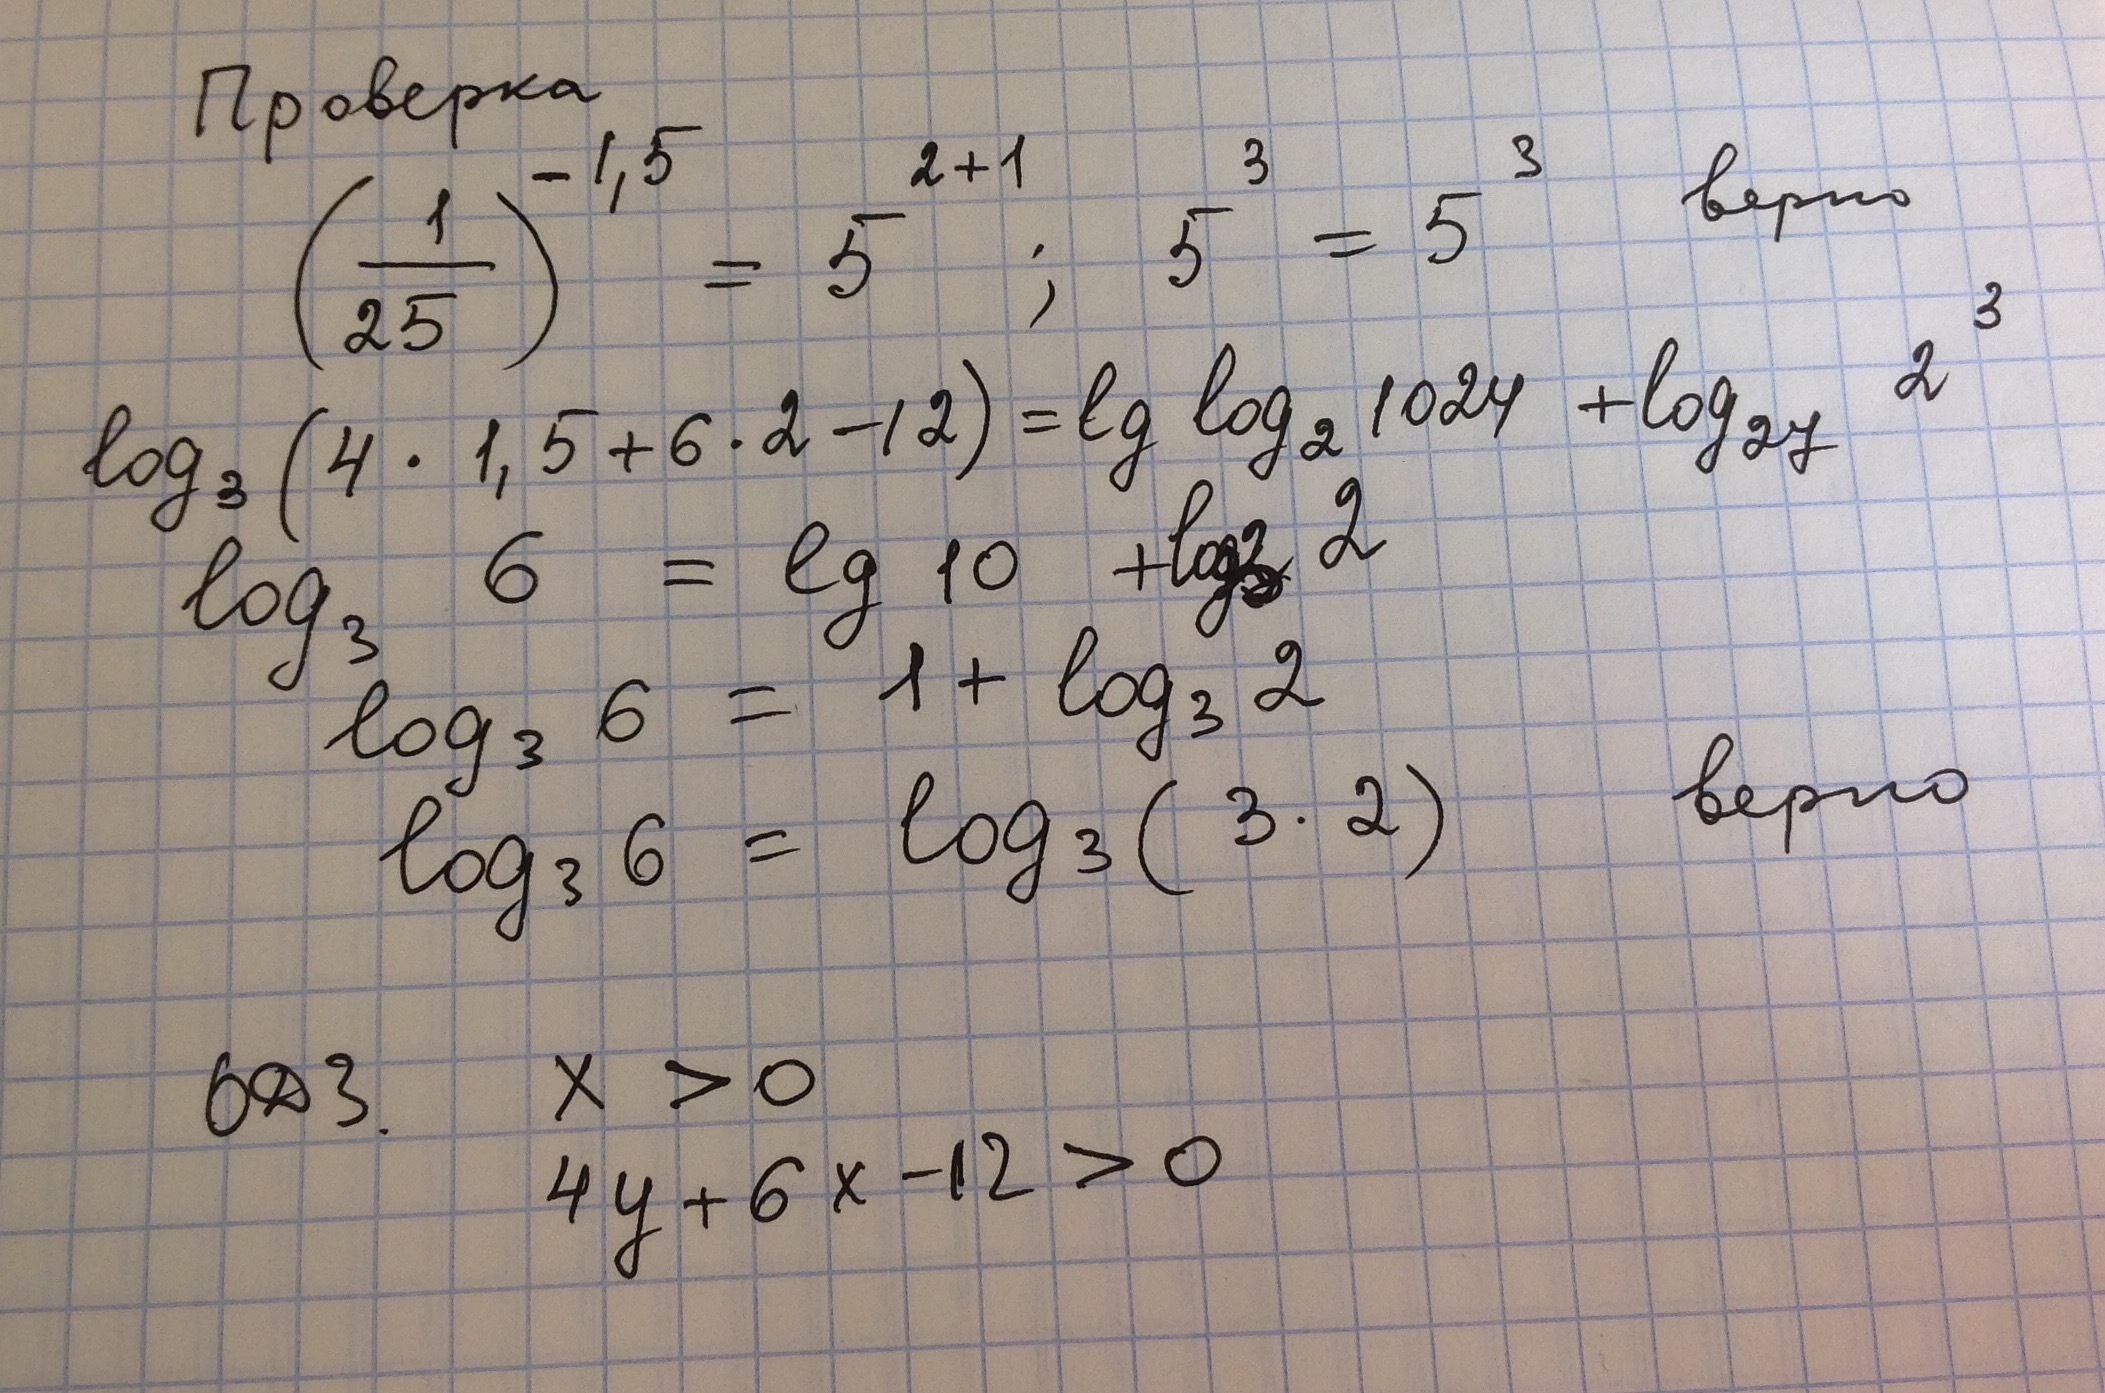 Проверка
(1/25)^-1,5 = 5^2+1 ; 5^3 = 5^3 верно
log₃(4 · 1,5 + 6 · 2 - 12) = lg log₂ 1024 + log₂₇ 2^3
log₃ 6 = lg 10 + log₃ 2
log₃ 6 = 1 + log₃ 2
log₃ 6 = log₃(3 · 2) верно
ОДЗ. x > 0
4y + 6x - 12 > 0